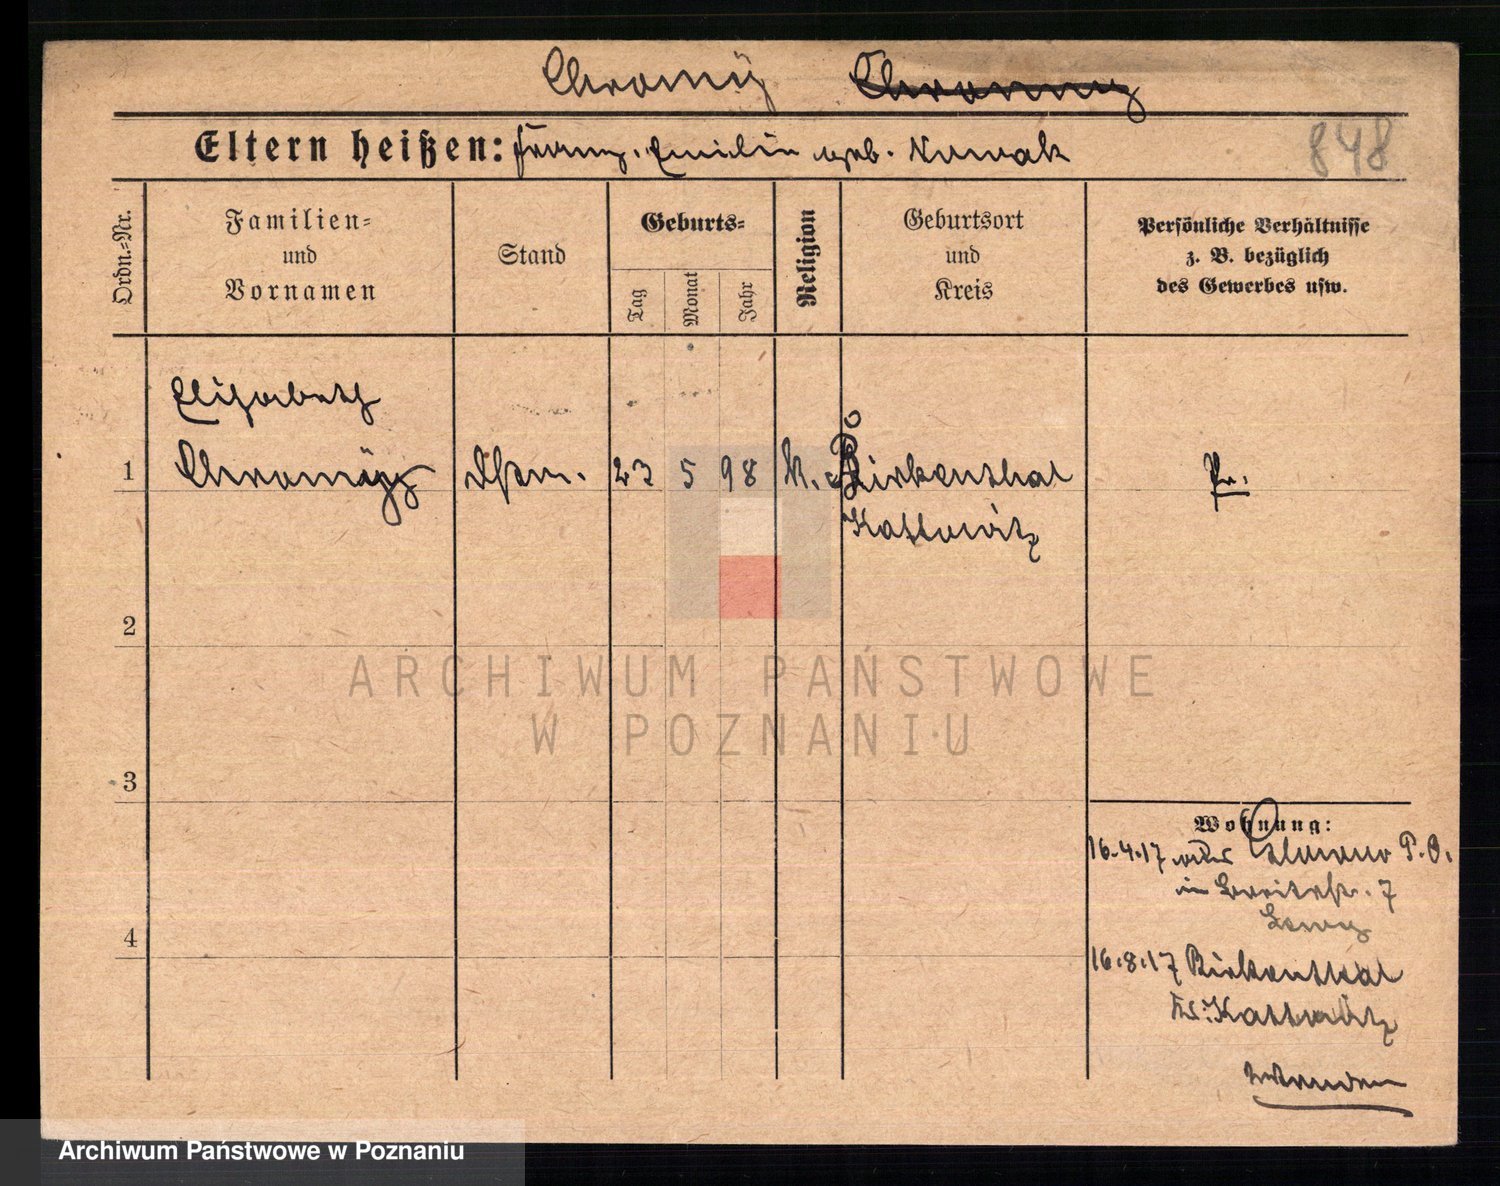 Chromÿ Chromy
848
Eltern heißen: Franz, Emilie geb. Nowak
Ordn.-Nr.
Familien-
und
Vornamen
Stand
Geburts-
Tag
Monat
Jahr
Religion
Geburtsort
und
Kreis
Persönliche Verhältnisse
z. B. bezüglich
des Gewerbes usw.
Elisabeth
1 23 5 98 K. Birkenthal Pr.
Kattowitz
2
ARCHIWUM PAŃSTWOWE
W POZNANIU
3
Wohnung:
16.4.17 P. O.
7
4
16.8.17 Birkenthal
Kr. Kattowitz
Archiwum Państwowe w Poznaniu